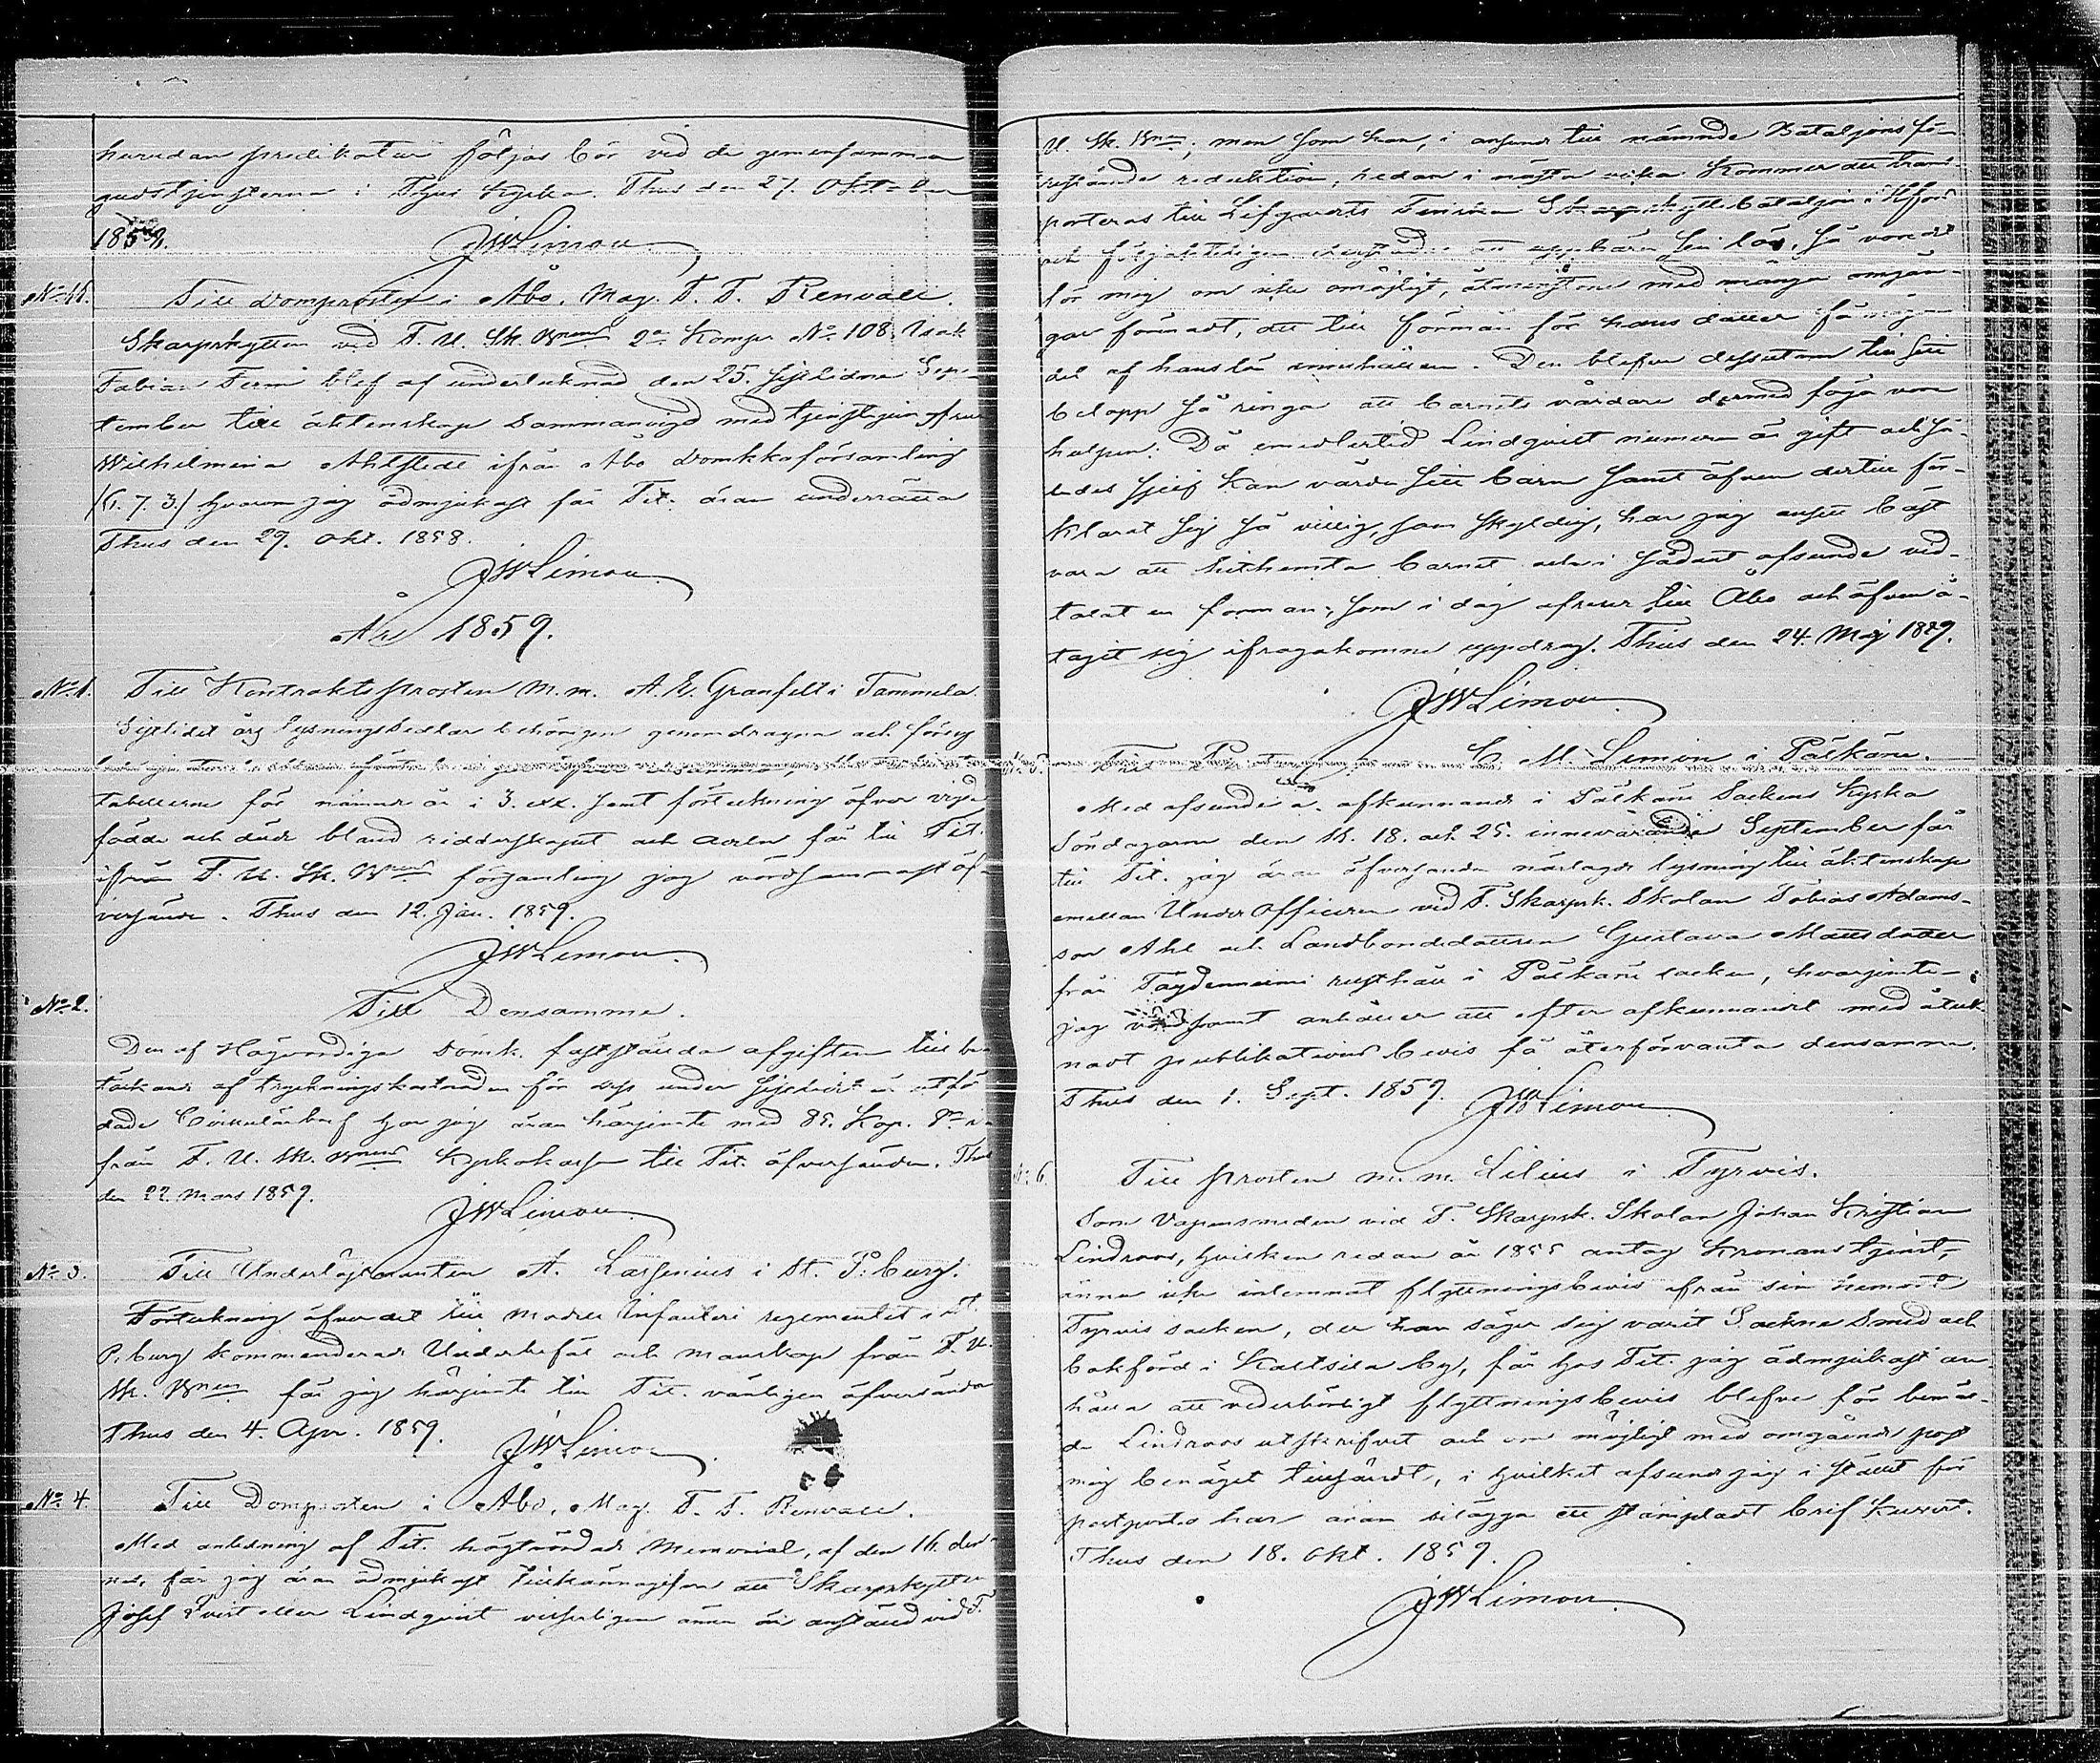 hurudan predikatur följas bör vid de gemensamma
gudstjensterna i Thus Kyrka. Thus den 27. Oktober
1858.
JWLimon
Till Domprosten i Åbo, Mag. T. T. Renvall.
Skarpskytten vid T. U. Sk. Bnens 2a Komp. No 108 Isak
Fabian Fermi blef af undertecknad den 25. sistlidne Sep-
tember till äktenskap sammanvigd med tjenstepigan
Wilhelmina Ahlstedt ifrån Åbo Domkkoförsamling
hvarom jag ödmjukast får Tit. äran underrätta
Thus den 29. Okt. 1858.
JWLimon
År 1859.
No 1. Till Kontraktsprosten m.m. A. E. Granfelt i Tammela
Sistlidet års lysningssedlar behörigen genomdragna och förseg
tabellerna för nämnde år i 3. ex. samt förteckning öfver vigde
födde och döde bland ridderskapet och adeln får till Tit.
ifrån T. U. Sk. Bnens församling jag vördsammast öf-
versända. Thus den 12. Jan. 1859.
JWLimon.
No 2.
Till Densamme.
Den af Högvördiga Domk. fastställda afgiften till be-
täckande af tryckningskostnaden för dess under sistlidet år utfär
dade Cirkulärbref har jag äran härjemte med 85. Kop. Sr i-
från T. U. Sk. Bnens Kyrkokassa till Tit. öfversända. Thus
den 22 Mars 1859.
JWLimon
No 3. Till Underlöjtnanten A. Larsenius i St. P:burg.
Förteckning öfver det till Modell Infanteri regementet i St.
P:burg kommenderade Underbefäl och manskap från T. U.
Sk. Bnen får jag härjemte till Tit. vänligen öfversända
Thus den 4. Apr. 1859.
JWLimon
No 4. Till Domprosten i Åbo, Mag. T. T. Renvall.
Med anledning af Tit. högtärade Memorial, af den 16. den-
nes, får jag äran ödmjukast tillkännagifva att Skarpskytten
Josef Qvist eller Lindqvist visserligen ännu är anställd vid T.
U. Sk. Bnen; men som han, i anseende till nämnde Bataljons fö-
restående reduktion, redan i nästa vecka kommer att trans-
porteras till Lifgardets Finska Skarpskyttebataljon i Hfors
och följaktligen att uppbära sin lön, så vore det
för mig om icke omöjligt, åtminstone med många omgån-
gar förenadt, att till förmån för hans dotter få någon
del af hans lön innehållen. Den blefve dessutom till sitt
belopp så ringa att barnets vårdare dermed föga vore
hulpen. Då emedlertid Lindqvist numera är gift och så-
ledes sjelf kan vårda sitt barn samt äfven dertill för-
klarat sig så villig, som skyldig, har jag ansett bäst
vara att hithemta barnet och i sådant afseende vid-
talat en forman, som i dag afreser till Åbo och äfven å-
tagit sig ifrågakomne uppdrag. Thus den 24. Maj 1859.
JWLimon
C. M. Limon i Pälkäne.
Med afseende å afkunnande i Pälkäne Sockens Kyrka
Söndagarne den 11. 18. och 25. innevarande September får
till Tit. jag äran öfversända närlagde lysning till äktenskap
emellan Under Officeren vid T. Skarpsk. Skolan Tobias Adams-
son Ahl och Landbondedottren Gustava Mattsdotter
från rusthåll i Pälkäne socken, hvarjemte
jag vördsamt anhåller att efter afkunnandet med åteck-
nadt publikations bevis få återförvänta densamma.
Thus den 1. Sept. 1859.
JWLimon
No 6. Till Prosten m. m. Lilius i Tyrvis.
Som Vapensmeden vid T. Skarpsk. Skolan Johan Kristian
Lindroos, hvilken redan år 1855 antog Kronans tjenst,
ännu icke inlemnat flyttningsbevis ifrån sin hemort
Tyrvis socken, der han säger sig varit Sockne Smed och
bokförd i Kaltsila by, får hos Tit. jag ödmjukast an-
hålla att vederbörligt flyttningsbevis blefve för benäm-
de Lindroos utskrifvet och om möjligt med omgående post
mig benäget tillsändt, i hvilket afseende jag i stället för
postporto har äran bilägga ett stämpladt bref kuvert.
Thus den 18. Okt. 1859.
JWLimon.